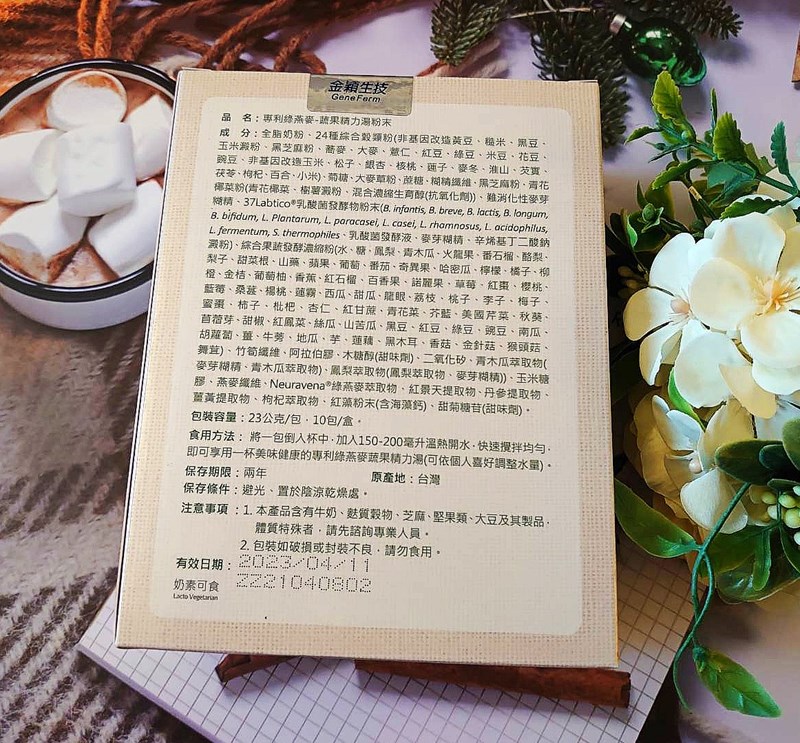 金穎生技
GeneFerm
品　名：專利綠燕麥-蔬果精力湯粉末
成　分：全脂奶粉、24種綜合穀類粉(非基因改造黃豆、糙米、黑豆、
玉米澱粉、黑芝麻粉、蕎麥、大麥、薏仁、紅豆、綠豆、米豆、花豆、
豌豆、非基因改造玉米、松子、銀杏、核桃、蓮子、麥冬、淮山、芡實、
茯苓、枸杞、百合、小米)、菊糖、大麥草粉、蔗糖、糊精纖維、黑芝麻粉、青花
椰菜粉(青花椰菜、樹薯澱粉、混合濃縮生育醇(抗氧化劑))、難消化性麥芽
糊精、37Labtico®乳酸菌發酵物粉末(B. infantis, B. breve, B. lactis, B. longum,
B. bifidum, L. Plantarum, L. paracasei, L. casei, L. rhamnosus, L. acidophilus,
L. fermentum, S. thermophiles、乳酸菌發酵液、麥芽糊精、辛烯基丁二酸鈉
澱粉)、綜合果蔬發酵濃縮粉(水、糖、鳳梨、青木瓜、火龍果、番石榴、酪梨、
梨子、甜菜根、山藥、蘋果、葡萄、番茄、奇異果、哈密瓜、檸檬、橘子、柳
橙、金桔、葡萄柚、香蕉、紅石榴、百香果、諾麗果、草莓、紅棗、櫻桃、
藍莓、桑葚、楊桃、蓮霧、西瓜、甜瓜、龍眼、荔枝、桃子、李子、梅子、
蜜棗、柿子、枇杷、杏仁、紅甘蔗、青花菜、芥藍、美國芹菜、秋葵、
苜蓿芽、甜椒、紅鳳菜、絲瓜、山苦瓜、黑豆、紅豆、綠豆、豌豆、南瓜、
胡蘿蔔、薑、牛蒡、地瓜、芋、蓮藕、黑木耳、香菇、金針菇、猴頭菇、
舞茸)、竹筍纖維、阿拉伯膠、木糖醇(甜味劑)、二氧化矽、青木瓜萃取物(
麥芽糊精、青木瓜萃取物)、鳳梨萃取物(鳳梨萃取物、麥芽糊精))、玉米糖
膠、燕麥纖維、Neuravena®綠燕麥萃取物、紅景天提取物、丹參提取物、
薑黃提取物、枸杞萃取物、紅藻粉末(含海藻鈣)、甜菊糖苷(甜味劑)。
包裝容量：23公克/包，10包/盒。
食用方法：將一包倒入杯中，加入150-200毫升溫熱開水，快速攪拌均勻，
即可享用一杯美味健康的專利綠燕麥蔬果精力湯(可依個人喜好調整水量)。
保存期限：兩年　原產地：台灣
保存條件：避光、置於陰涼乾燥處。
注意事項：1. 本產品含有牛奶、麩質穀物、芝麻、堅果類、大豆及其製品，
體質特殊者，請先諮詢專業人員。
2. 包裝如破損或封裝不良，請勿食用。
有效日期：2023/04/11
奶素可食 ZZ21040802
Lacto Vegetarian